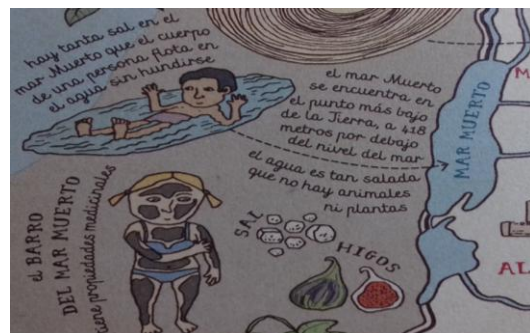 hay tanta sal en el
mar Muerto que el cuerpo
de una persona flota en
el agua sin hundirse
el mar Muerto
se encuentra en
el punto más bajo
de la Tierra, a 418
metros por debajo
del nivel del mar
el agua es tan salada
que no hay animales
ni plantas
MAR MUERTO
el BARRO
DEL MAR MUERTO
tiene propiedades medicinales
SAL
HIGOS
M
AL